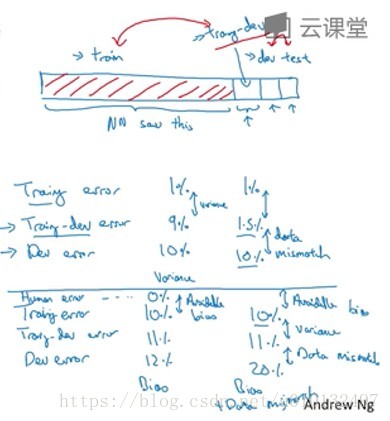 云课堂
→ train
→ train-dev
→ dev test
NN saw this
Training error 1% 1%
variance
→ Training-dev error 9% 1.5%
data mismatch
→ Dev error 10% 10%
Variance
Human error .... 0%
Avoidable bias
Avoidable bias
Training error 10% 10%
variance
Training-dev error 11% 11%
Data mismatch
Dev error 12% 20%
Bias Bias
+ Data mismatch
Andrew Ng